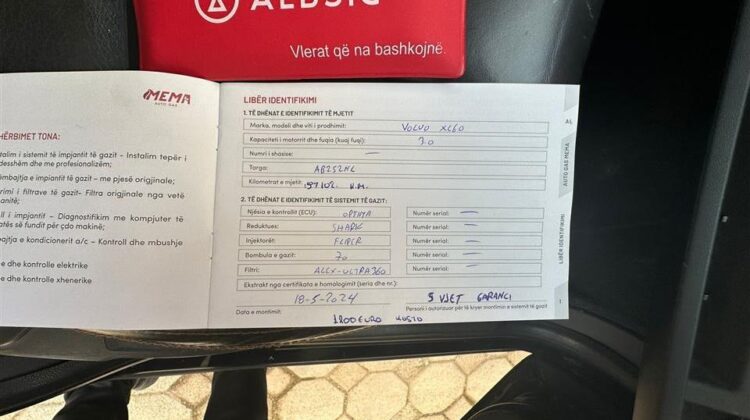 ALBSIG
Vlerat që na bashkojnë.
MEMA
AUTO GAS
HËRBIMET TONA:
nstalim i sistemit të impjantit të gazit - Instalim tepër i
desshëm dhe me profesionalizëm;
ëmbajtja e impiantit të gazit - me pjesë origjinale;
rimi i filtrave të gazit- Filtra origjinale nga vetë
ll i impjantit - Diagnostifikim me kompjuter të
atës së fundit për çdo makinë;
bajtja e kondicionerit a/c - Kontroll dhe mbushje
e dhe kontrolle elektrike
e dhe kontrolle xhenerike
LIBËR IDENTIFIKIMI
1. TË DHËNAT E IDENTIFIKIMIT TË MJETIT
Marka, modeli dhe viti i prodhimit: VOLVO XC60
Kapaciteti i motorrit dhe fuqia (kuaj fuqi): 3.0
Numri i shasise: —
Targa: AB252NL
Kilometrat e mjetit: 197.102. K.M.
2. TË DHËNAT E IDENTIFIKIMIT TË SISTEMIT TË GAZIT:
Njësia e kontrollit (ECU): OPTIMA Numër serial: —
Reduktues: SHARK Numër serial: —
Injektorët: FLIPER Numër serial: —
Bombula e gazit: 70 Numër serial: —
Filtri: ALEX-ULTRA360 Numër serial: —
Ekstrakt nga certifikata e homologimit (seria dhe nr.):
18-5-2024 5 VJET GARANCI
Data e montimit: Personi i autorizuar për të kryer montimin e sistemit të gazit
1200 EURO KOSTO
AL
AUTO GAS MEMA
LIBËR IDENTIFIKIMI
1.